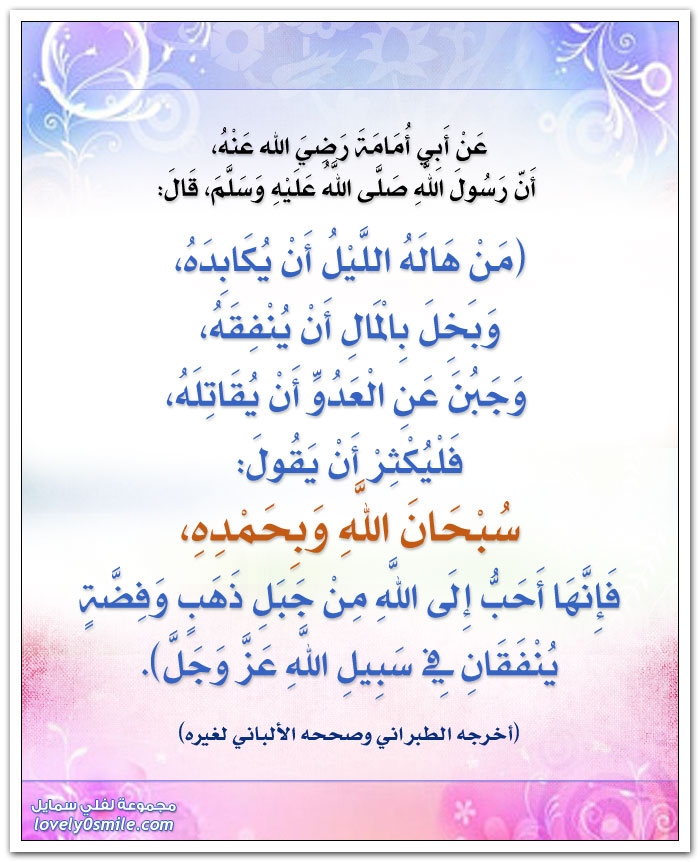 عَنْ أَبِي أُمَامَةَ رَضِيَ الله عَنْهُ،
أَنّ رَسُولَ اللَّهِ صَلَّى اللَّهُ عَلَيْهِ وَسَلَّمَ، قَالَ:
(مَنْ هَالَهُ اللَّيْلُ أَنْ يُكَابِدَهُ،
وَبَخِلَ بِالْمَالِ أَنْ يُنْفِقَهُ،
وَجَبُنَ عَنِ الْعَدُوِّ أَنْ يُقَاتِلَهُ،
فَلْيُكْثِرْ أَنْ يَقُولَ:
سُبْحَانَ اللَّهِ وَبِحَمْدِهِ،
فَإِنَّهَا أَحَبُّ إِلَى اللَّهِ مِنْ جَبَلِ ذَهَبٍ وَفِضَّةٍ
يُنْفَقَانِ فِي سَبِيلِ اللَّهِ عَزَّ وَجَلَّ).
(أخرجه الطبراني وصححه الألباني لغيره)
مجموعة لفلي سمايل
lovely0smile.com